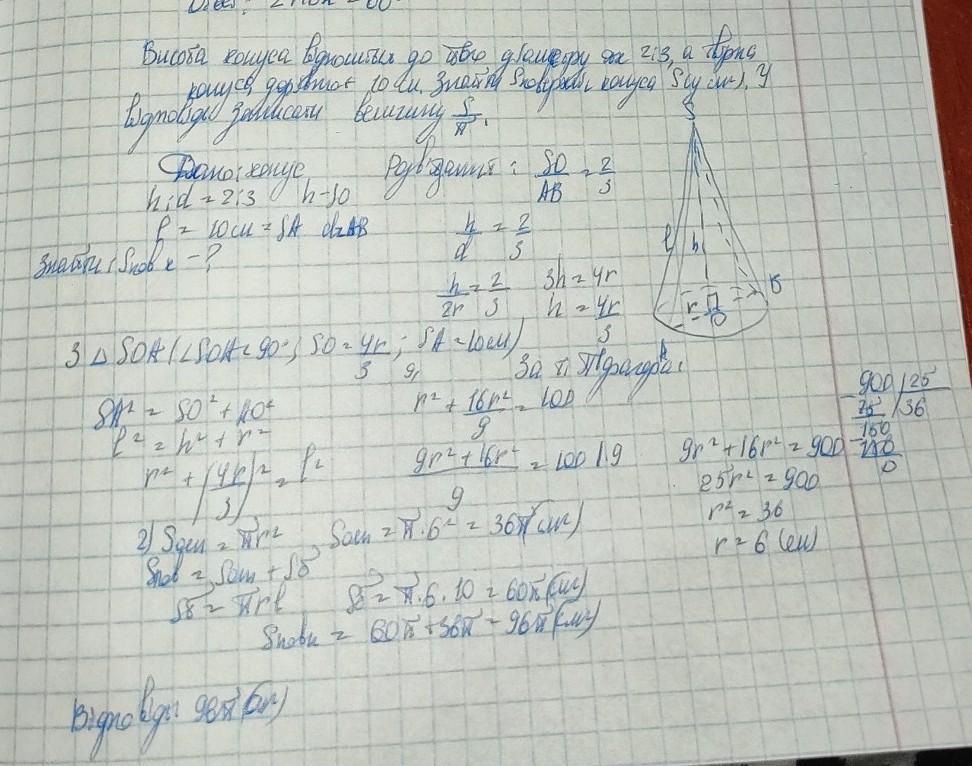 Висота конуса відноситься до його діаметру як 2:3, а твірна
конуса дорівнює 10 см. Знайти Sповерхні конуса S(у см²). У
відповіді записати величину S/π.
S
Дано: конус
h:d = 2:3 h-SO
l = 10см = SA d=AB
Знайти: Sпов к -?
Розв'язання: SO/AB = 2/3
h/d = 2/3
h/2r = 2/3 3h = 4r
h = 4r/3
l h r O A B
З △ SOA (∠SOA = 90°, SO = 4r/3; SA = 10см)
За т. Піфагора:
SA² = SO² + AO²
l² = h² + r²
r² + (4r/3)² = l²
r² + 16r²/9 = 100
9r² + 16r²/9 = 100 |·9
9r² + 16r² = 900
25r² = 900
r² = 36
r = 6 (см)
900 | 25
75 | 36
150
150
0
2) Sосн = πr² Sосн = π·6² = 36π(см²)
Sпов = Sосн + Sδ
Sδ = πrl Sδ = π·6·10 = 60π(см²)
Sповк = 60π + 36π = 96π(см²)
Відповідь 96π(см²)